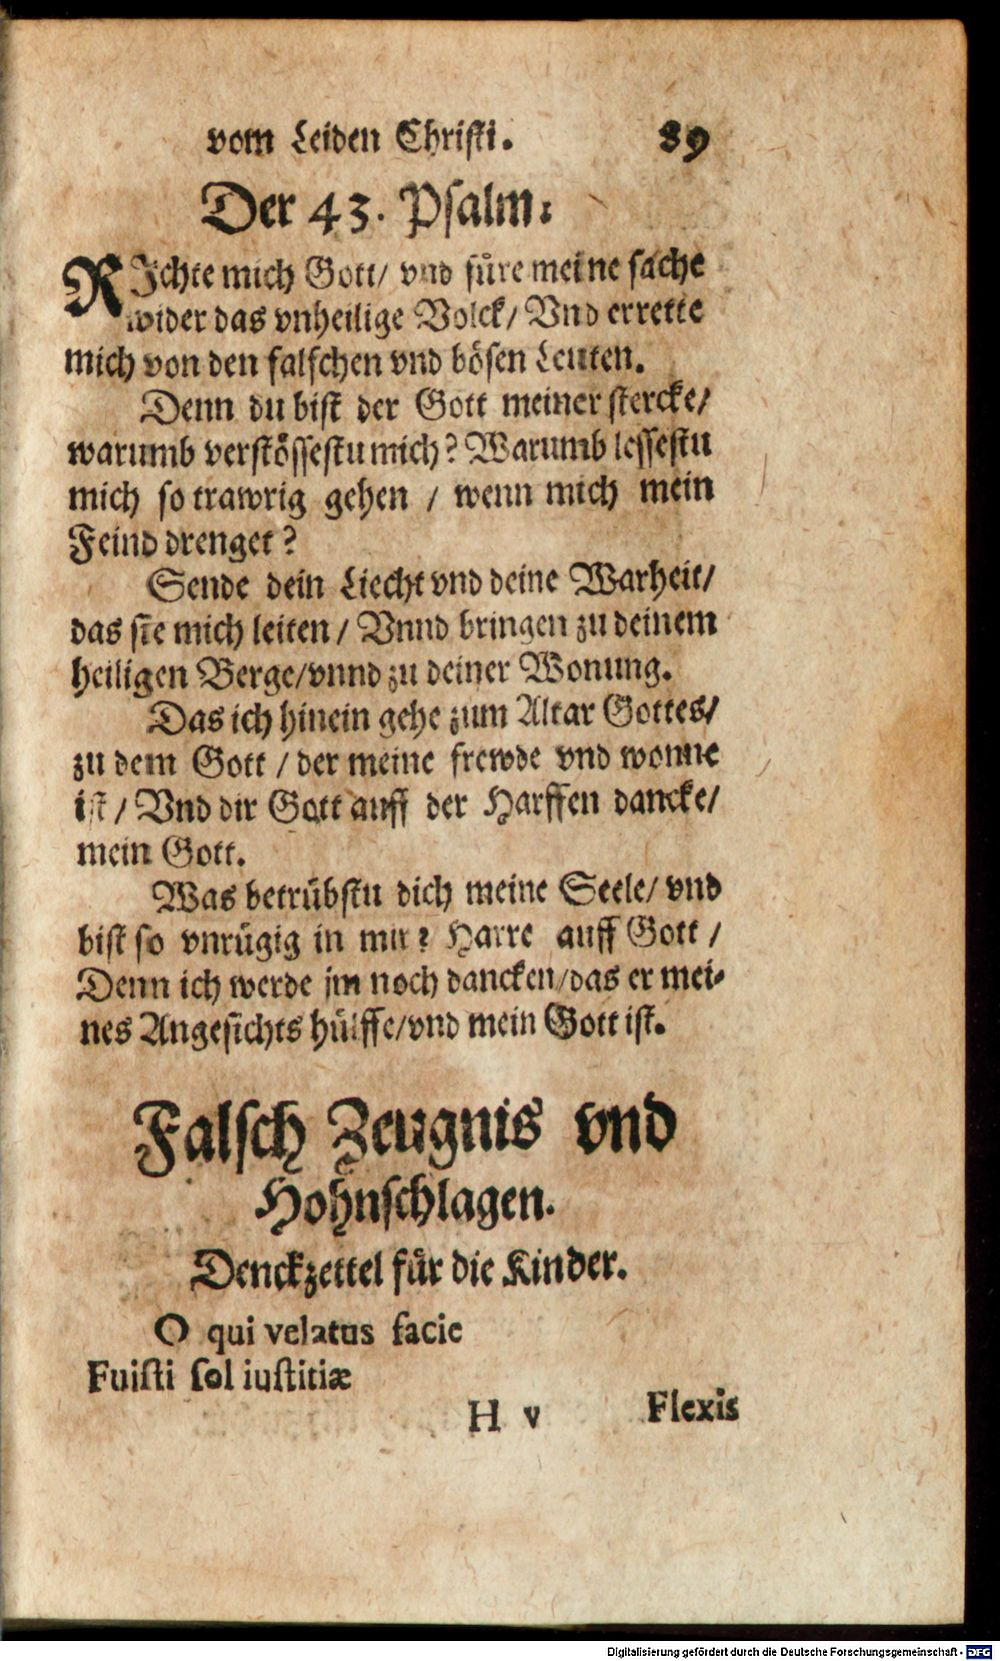 vom Leiden Christi. 89
Der 43. Psalm.
RJchte mich Gott/ vnd füre meine sache
wider das vnheilige Volck/ Vnd errette
mich von den falschen vnd bösen Leuten.
Denn du bist der Gott meiner stercke/
warumb verstössestu mich? Warumb lessestu
mich so trawrig gehen / wenn mich mein
Feind drenget?
Sende dein Liecht vnd deine Warheit/
das sie mich leiten / Vnnd bringen zu deinem
heiligen Berge/vnnd zu deiner Wonung.
Das ich hinein gehe zum Altar Gottes/
zu dem Gott / der meine frewde vnd wonne
ist / Vnd dir Gott auff der Harffen dancke/
mein Gott.
Was betrübstu dich meine Seele/ vnd
bist so vnrügig in mir? Harre auff Gott /
Denn ich werde jm noch dancken/das er mei-
nes Angesichts hülffe/vnd mein Gott ist.
Falsch Zeugnis vnd
Hohnschlagen.
Denckzettel für die Kinder.
O qui velatus facie
Fuisti sol iustitiæ
H v Flexis
Digitalisierung gefördert durch die Deutsche Forschungsgemeinschaft - DFG